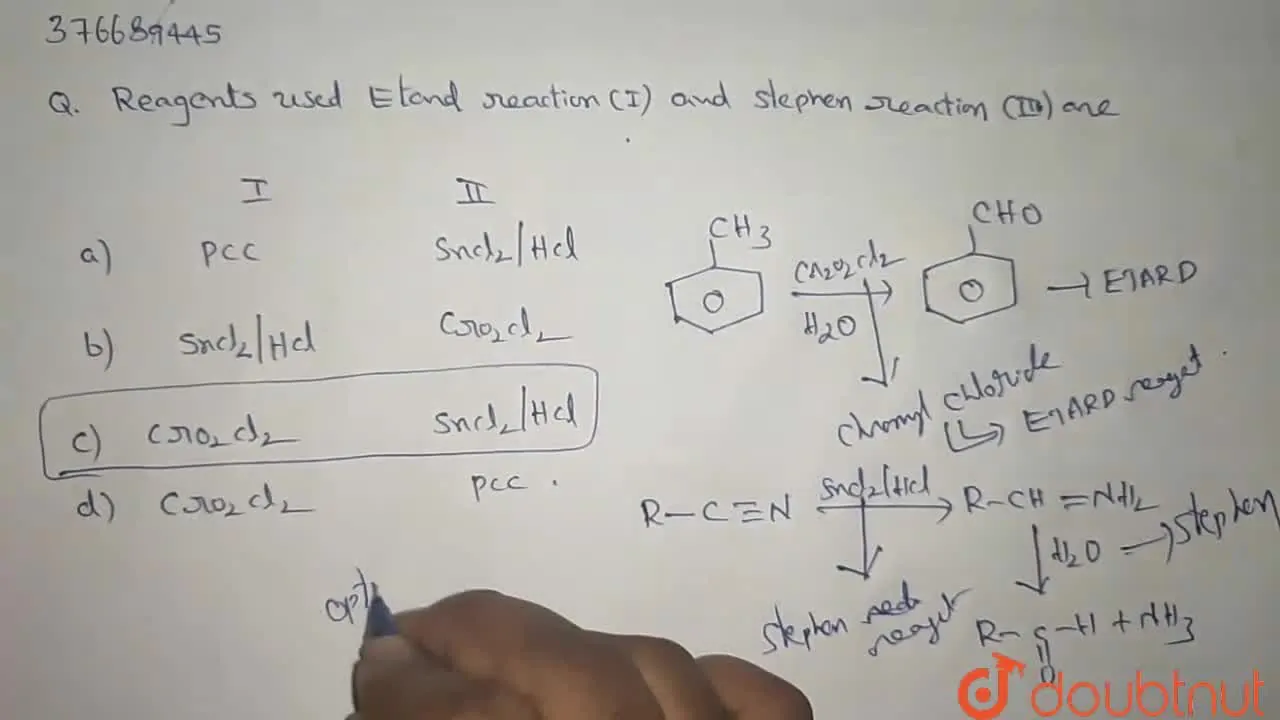 376689445
Q. Reagents used Etard reaction (I) and stephen reaction (II) are
I II
a) PCC SnCl2/HCl
b) SnCl2/HCl CrO2Cl2
c) CrO2Cl2 SnCl2/HCl
d) CrO2Cl2 PCC .
CH3
CrO2Cl2
H2O
CHO
→ ETARD
chromyl chloride
↳ ETARD reaget .
R-C≡N SnCl2/HCl R-CH=NH2
H2O → stephen
stephen
reaget
R-C-H + NH3
O
opt
doubtnut